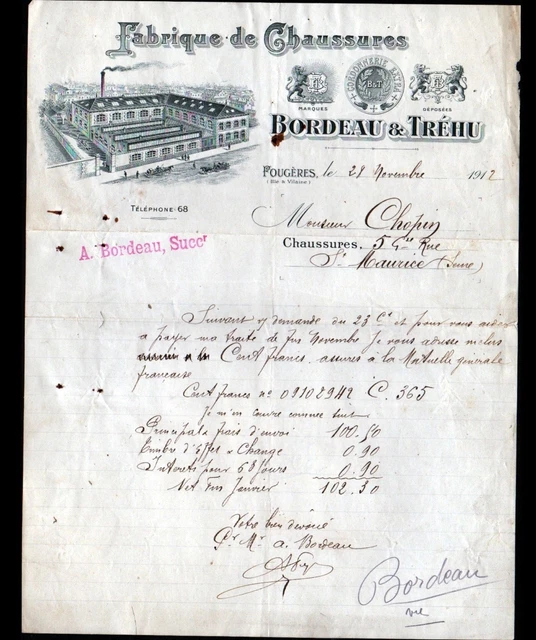 Fabrique de Chaussures
CORDONNERIE EXTRA
B&T
MARQUES
DÉPOSÉES
BORDEAU & TRÉHU
FOUGÈRES, le 29 Novembre 1912
(Ille & Vilaine)
TÉLÉPHONE 68
Monsieur Chopin
Chaussures, 5 Gde Rue
St Maurice (Seine)
A. Bordeau, Succr
Suivant v/ demande du 23 Ct et pour vous aider
a payer ma traite de fin Novembre Je vous adresse
Cent francs assures à la Mutuelle générale
francaise
Cent francs no 09108942 C. 365
Je m'en couvre comme suit
Principal & frais d'envoi 100.50
Timbre d'Effet & Change 0.90
Interets pour 63 jours 0.90
Net Fin Janvier 102.30
Votre bien dévoué
Pr Mr A. Bordeau
Bordeau